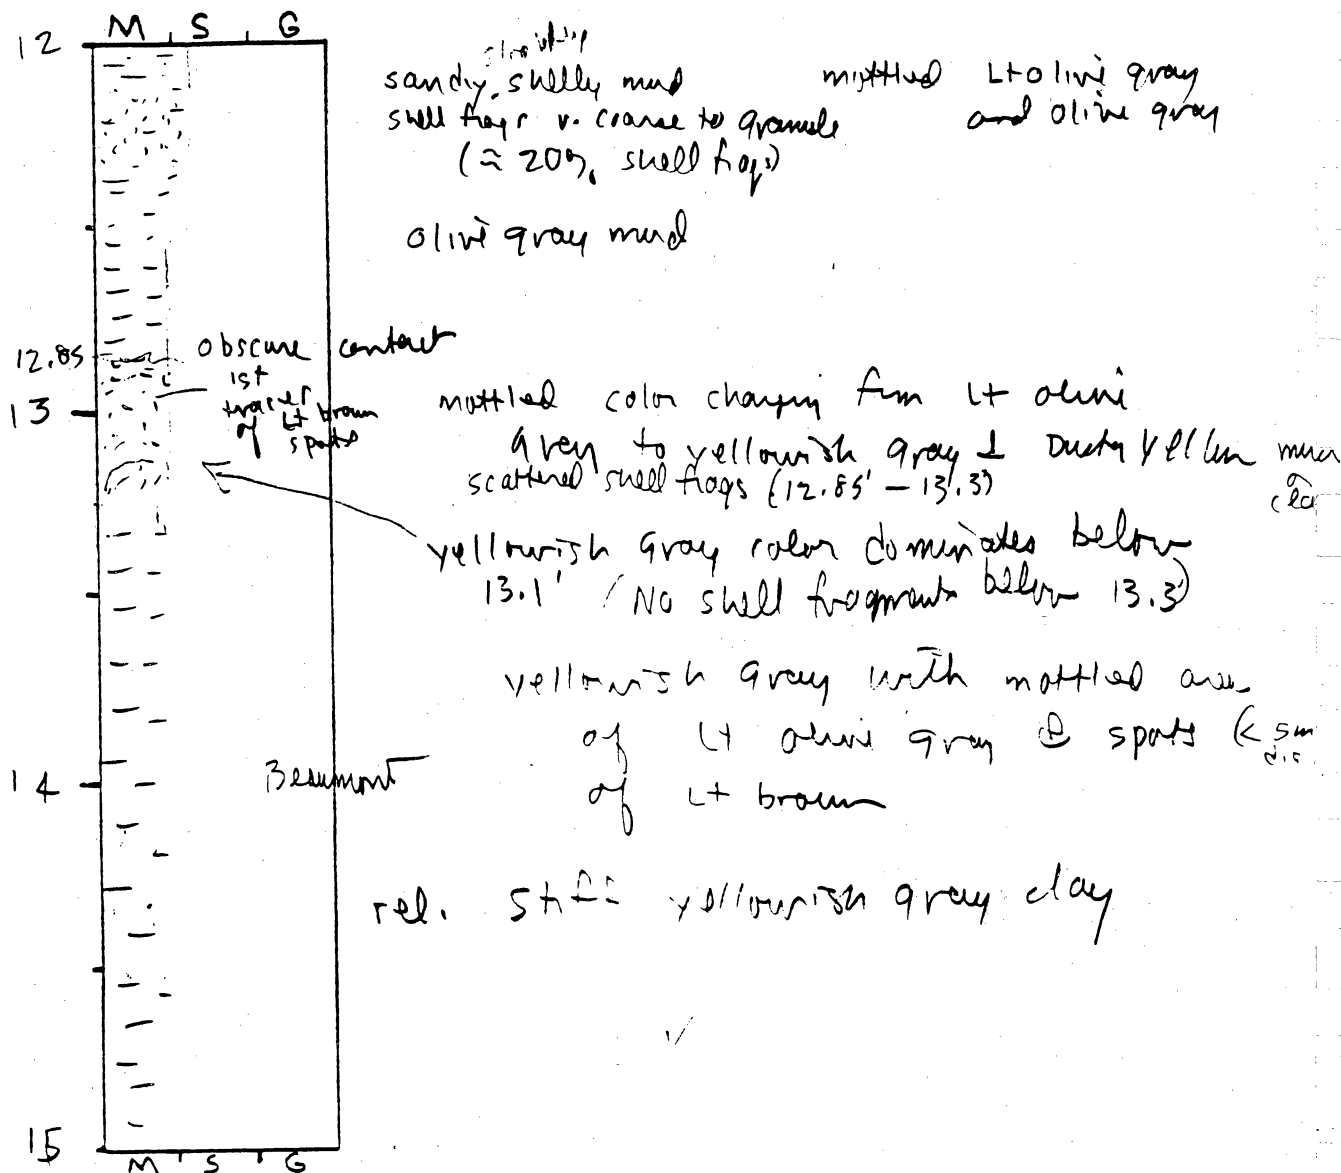 M S G
12
sandy, shelly mud mottled Lt olive gray
shell frags v. coarse to granule and olive gray
(≈ 20% shell frags)
olive gray mud
12.85 obscure contact
1st
traces
of Lt brown
spots
13
mottled color changing from Lt olive
gray to yellowish gray & Dusky Yellow
scattered shell frags (12.85' - 13.3')
yellowish gray color dominates below
13.1' (No shell fragments below 13.3')
yellowish gray with mottled areas
of Lt olive gray & spots (< 5m
of Lt brown
14 Beaumont
rel. stiff yellowish gray clay
15
M S G